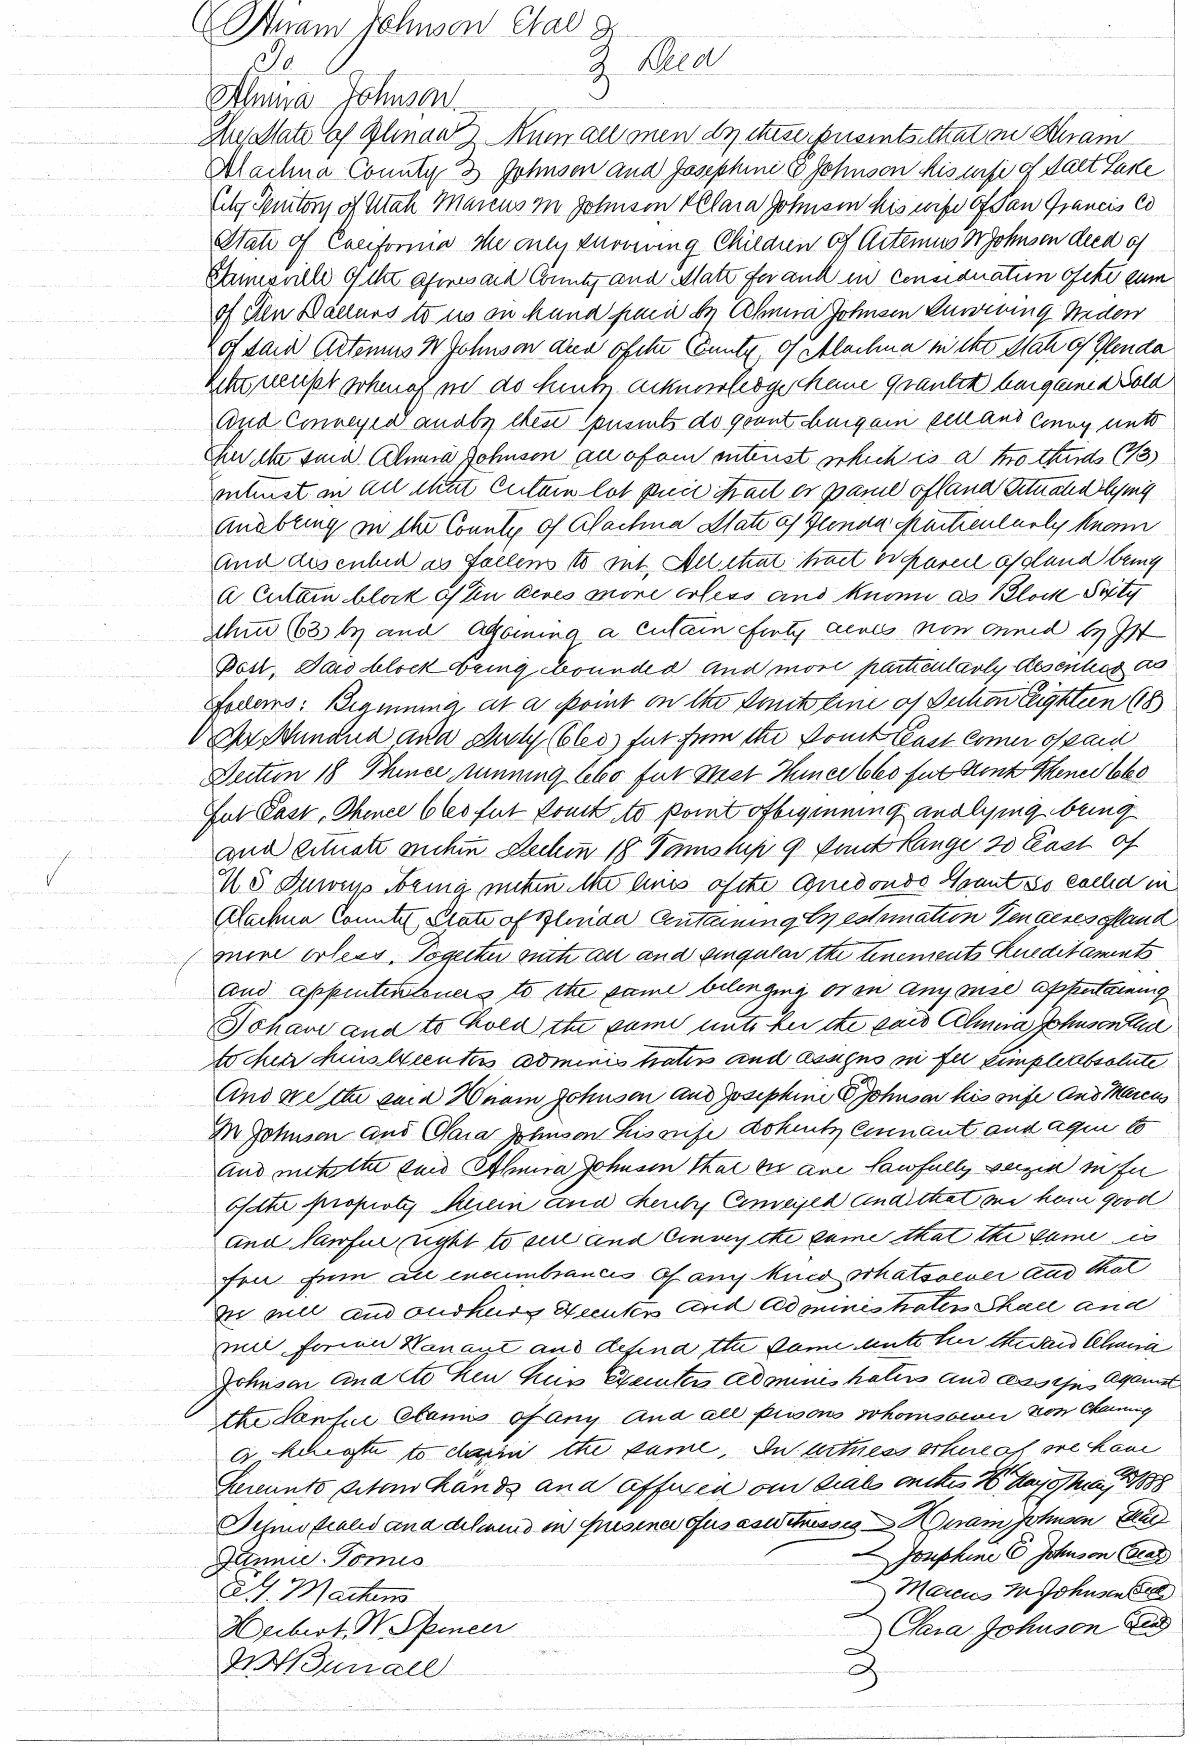 Hiram Johnson Etal
To Deed
Almira Johnson
The State of Florida Know all men by these presents that we Hiram
Alachua County Johnson and Josephine E Johnson his wife of Salt Lake
City Territory of Utah Marcus M Johnson & Clara Johnson his wife of San Francis Co
State of California the only surviving Children of Artemus W Johnson decd of
Gainesville of the aforesaid County and State for and in consideration of the sum
of Ten Dollars to us in hand paid by Almira Johnson Surviving Widow
of said Artemus W Johnson decd of the County of Alachua in the State of Florida
the receipt whereof we do hereby acknowledge have granted bargained Sold
and Conveyed and by these presents do grant bargain sell and convey unto
her the said Almira Johnson all of our interest which is a two thirds (2/3)
interest in all that certain lot piece tract or parcel of land situated lying
and being in the County of Alachua State of Florida particularly known
and described as follows to wit, All that tract or parcel of land being
a certain block of Ten acres more or less and known as Block Sixty
three (63) by and adjoining a certain forty acres now owned by J H
Post, Said block being bounded and more particularly described as
follows: Beginning at a point on the South line of Section Eighteen (18)
Six Hundred and Sixty (660) feet from the South East corner of said
Section 18 Thence running 660 feet West Thence 660 feet North Thence 660
feet East, Thence 660 feet South to point of beginning and lying being
and situate within Section 18 Township 9 South Range 20 East of
U S Surveys being within the lines of the Arredondo Grant so called in
Alachua County State of Florida Containing by estimation Ten acres of land
more or less. Together with all and singular the tenements hereditaments
and appurtenances to the same belonging or in any wise appertaining
To have and to hold the same unto her the said Almira Johnson and
to her heirs Executors administrators and assigns in fee simple absolute
And we the said Hiram Johnson and Josephine E Johnson his wife and Marcus
M Johnson and Clara Johnson his wife do hereby covenant and agree to
and with the said Almira Johnson that we are lawfully seized in fee
of the property herein and hereby Conveyed and that we have good
and lawful right to sell and Convey the same that the same is
free from all encumbrances of any kind whatsoever and that
we will and our heirs Executors and administrators Shall and
will forever Warrant and defend the same unto her the said Almira
Johnson and to her heirs Executors administrators and assigns against
the lawful Claims of any and all persons whomsoever now claiming
or hereafter to claim the same. In witness whereof we have
hereunto set our hands and affixed our seals on this day of May AD 1888
Signed sealed and delivered in presence of us as witnesses Hiram Johnson Seal
Jannie Tomes Josephine E Johnson Seal
E. G. Mathews Marcus M Johnson Seal
Herbert. W. Spencer Clara Johnson Seal
W H Burrall